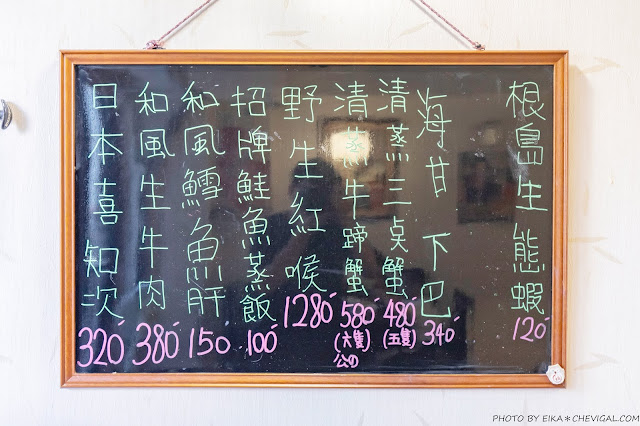 根島生熊蝦
120
海甘 下巴
340
清蒸三点蟹
480
(五隻)
清蒸牛蹄蟹
580
(六隻)
公の
野生紅喉
1280
招牌鮭魚蒸飯
100
和風鱈魚肝
150
和風生牛肉
380
日本喜知次
320
PHOTO BY EIKA＊CHEVIGAL.COM